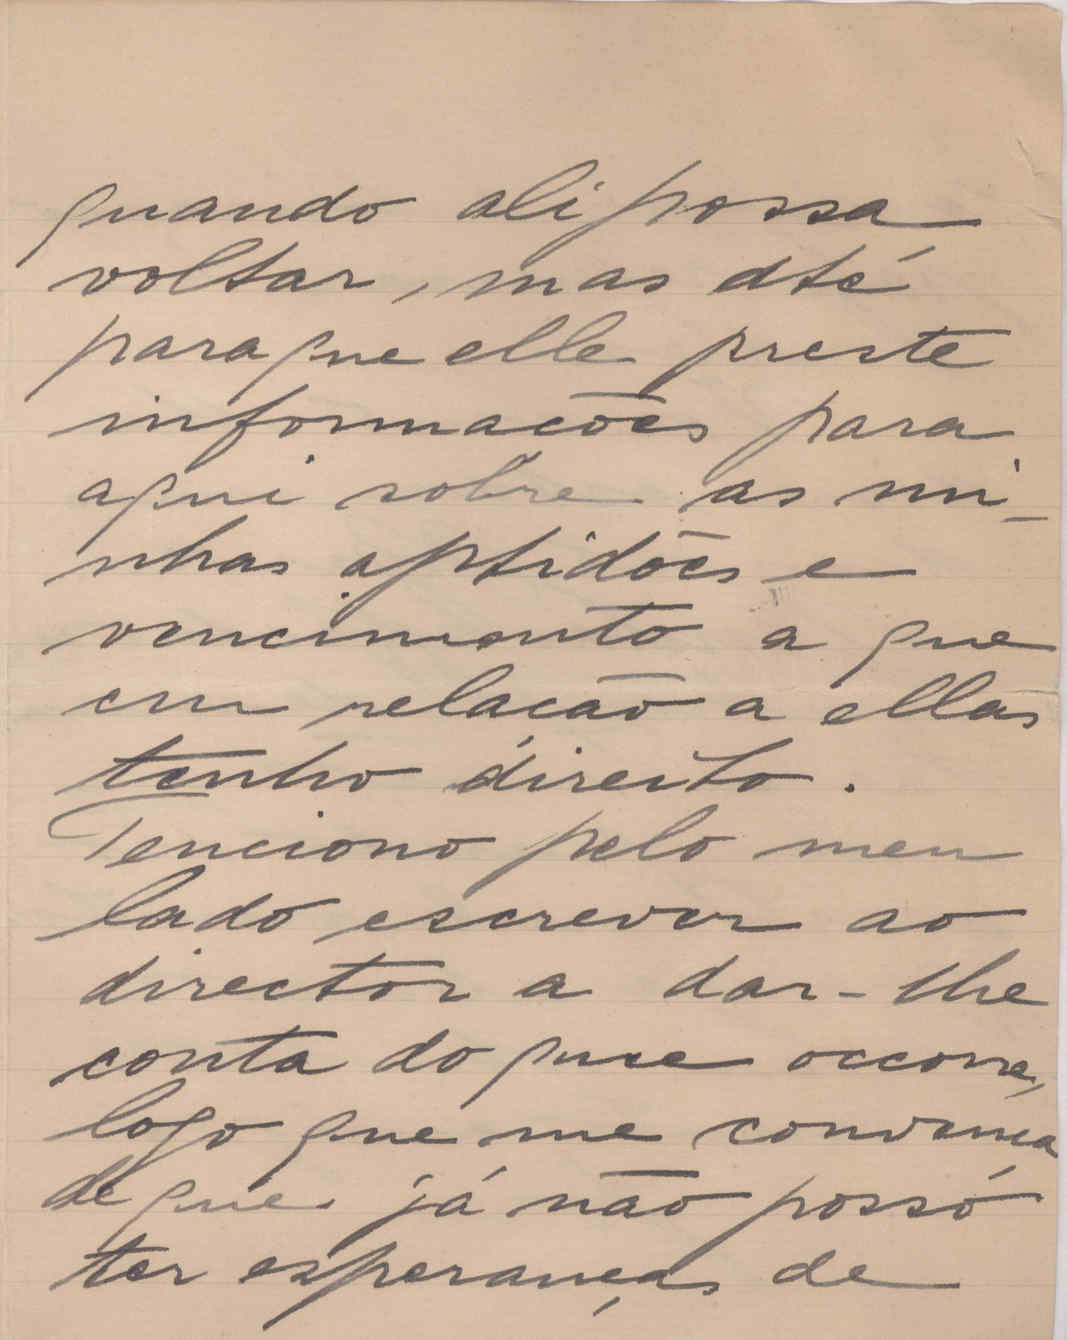 quando ali possa
voltar, mas até
para que elle preste
informacões para
aqui sobre as mi-
nhas aptidões e
vencimento a que
em relacão a ellas
tenho direito.
Tenciono pelo meu
lado escrever ao
director a dar-lhe
conta do que occorre,
logo que me convença
de que já não possó
ter esperanças de